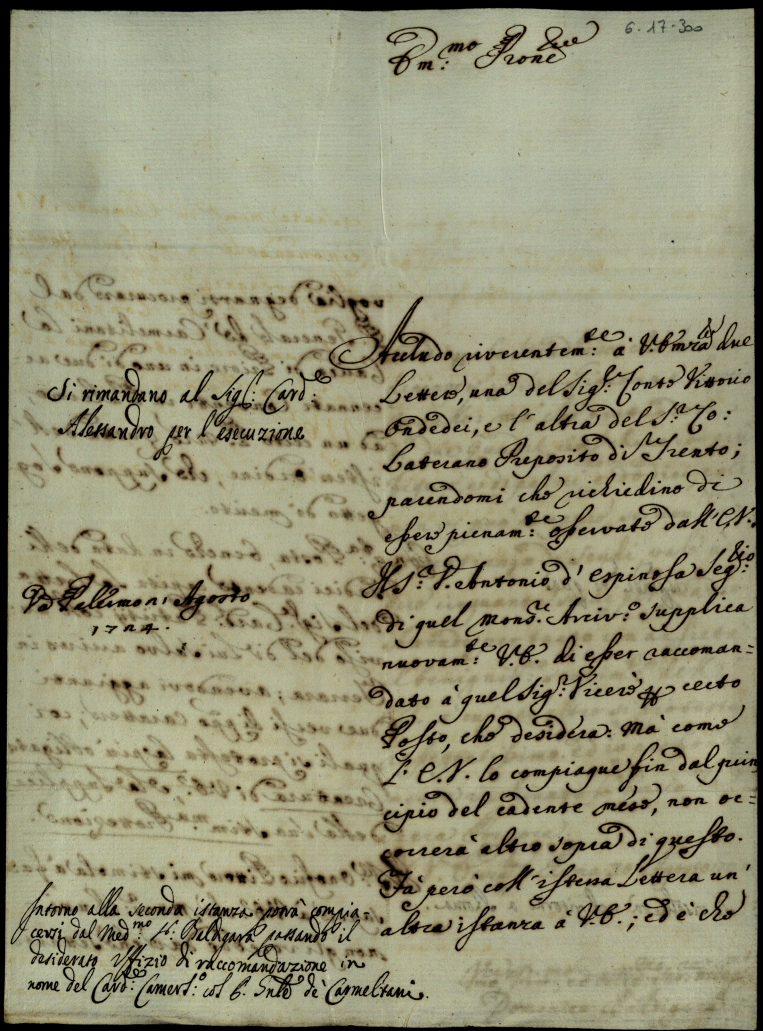 6-17-300
Em:mo Prone
Accludo riverentem:te à V. Em:za due
Lettere, una del Sig:r Conte Vittorio
Ondedei, e l'altra del S:r Co:
Laterano Preposito di Trento;
parendomi che richiedino di
esser pienam:te osservate dall'E.V.
Il S:r D. Antonio d'Espinosa Seg:rio
di quel Mons:r Arciv:o supplica
nuovam:te V.E. di esser raccoman=
dato à quel Sig:r Vicerè certo
Posto, che desidera: Mà come
l'E.V. lo compiacque fin dal prin=
cipio del cadente mese, non oc=
correrà altro sopra di questo.
Fà però coll'istessa Lettera un'
altra istanza à V.E.; ed è che
Si rimandano al Sig:r Card:e
Alessandro per l'esecuzione
Da Palermo Agosto
1724.
Intorno alla seconda istanza potrà compia-
cersi dal Med:mo passando il
desiderato Uffizio di raccomandazione in
nome del Card:e Camerl:o col P. Gnle de' Carmelitani.